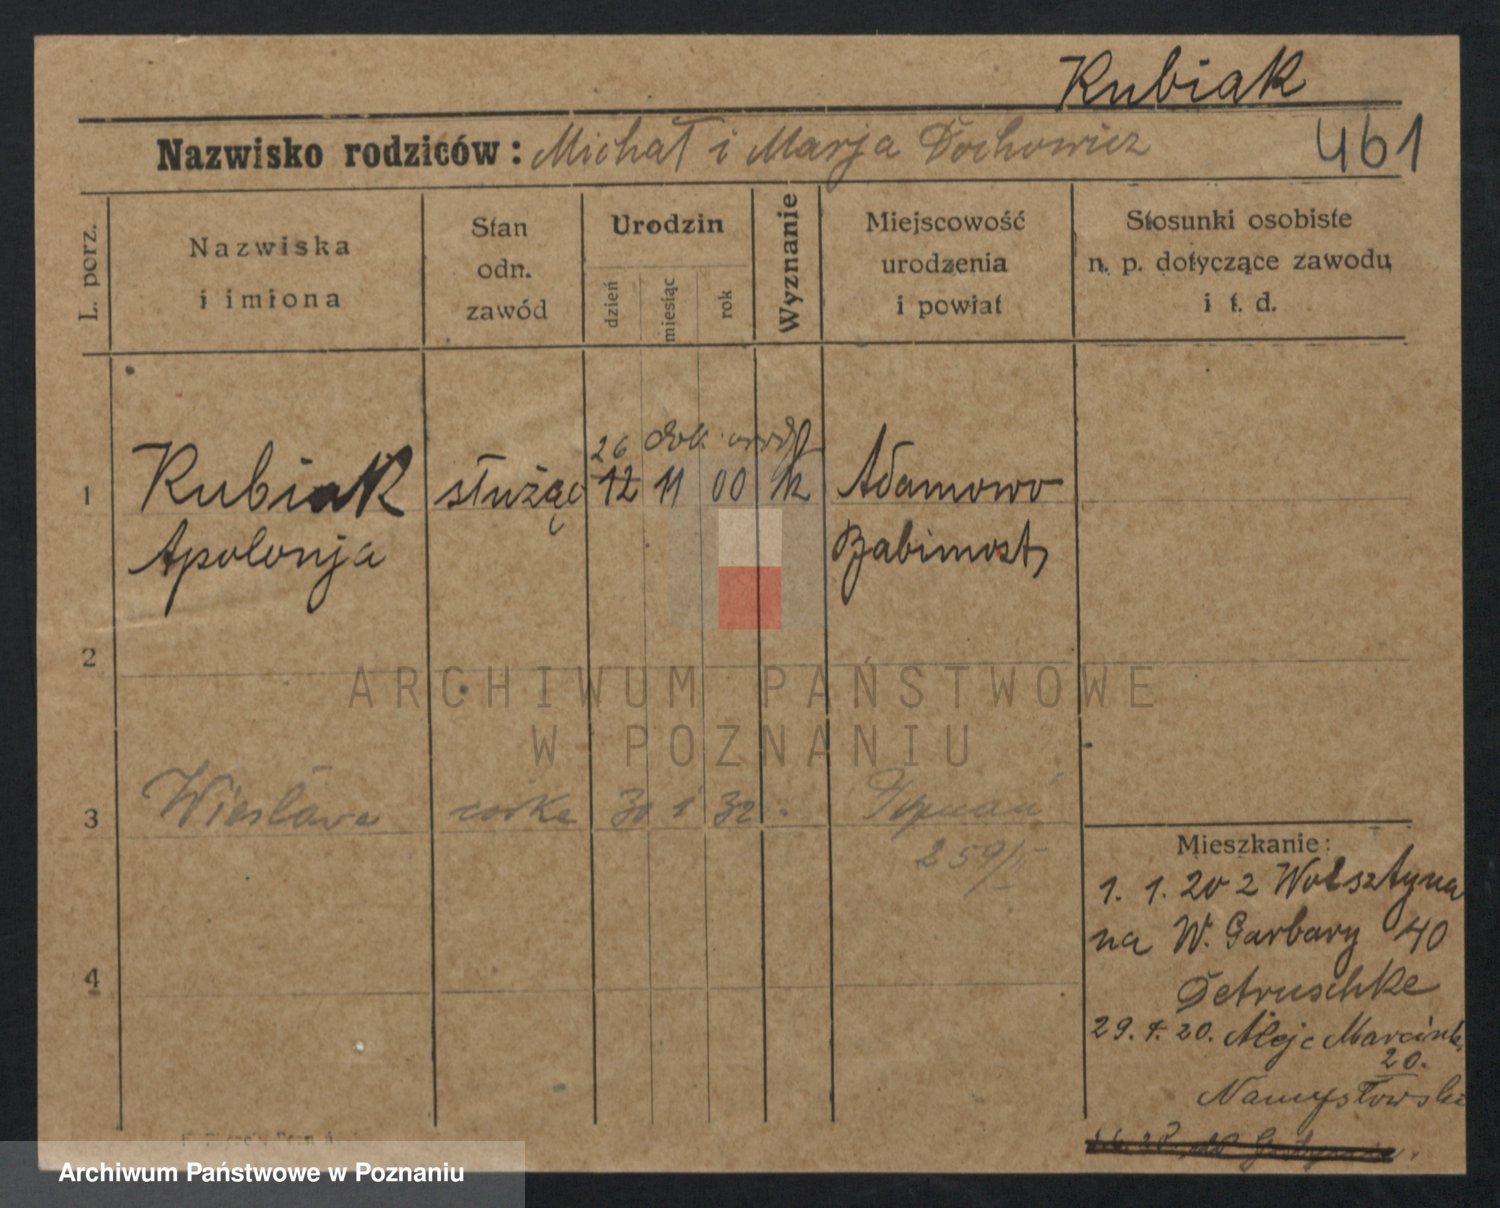 Kubiak
Nazwisko rodziców: Michał i Marja Dochowicz
461
L. porz.
Nazwiska
i imiona
Stan
odn.
zawód
Urodzin
dzień
miesiąc
rok
Wyznanie
Miejscowość
urodzenia
i powiat
Stosunki osobiste
n. p. dotyczące zawodu
i t. d.
26
1 Kubiak służąc 12 11 00 k Adamowo
Apolonja Babimost
2
ARCHIWUM PAŃSTWOWE
W POZNANIU
3 Wiesława córka 30 1 32 Poznań
259/II
Mieszkanie:
1. 1. 20 z Wolsztyna
na W. Garbary 40
Petruschke
29. 7. 20. Aleje Marcink.
20.
Namysłowski
4
Archiwum Państwowe w Poznaniu